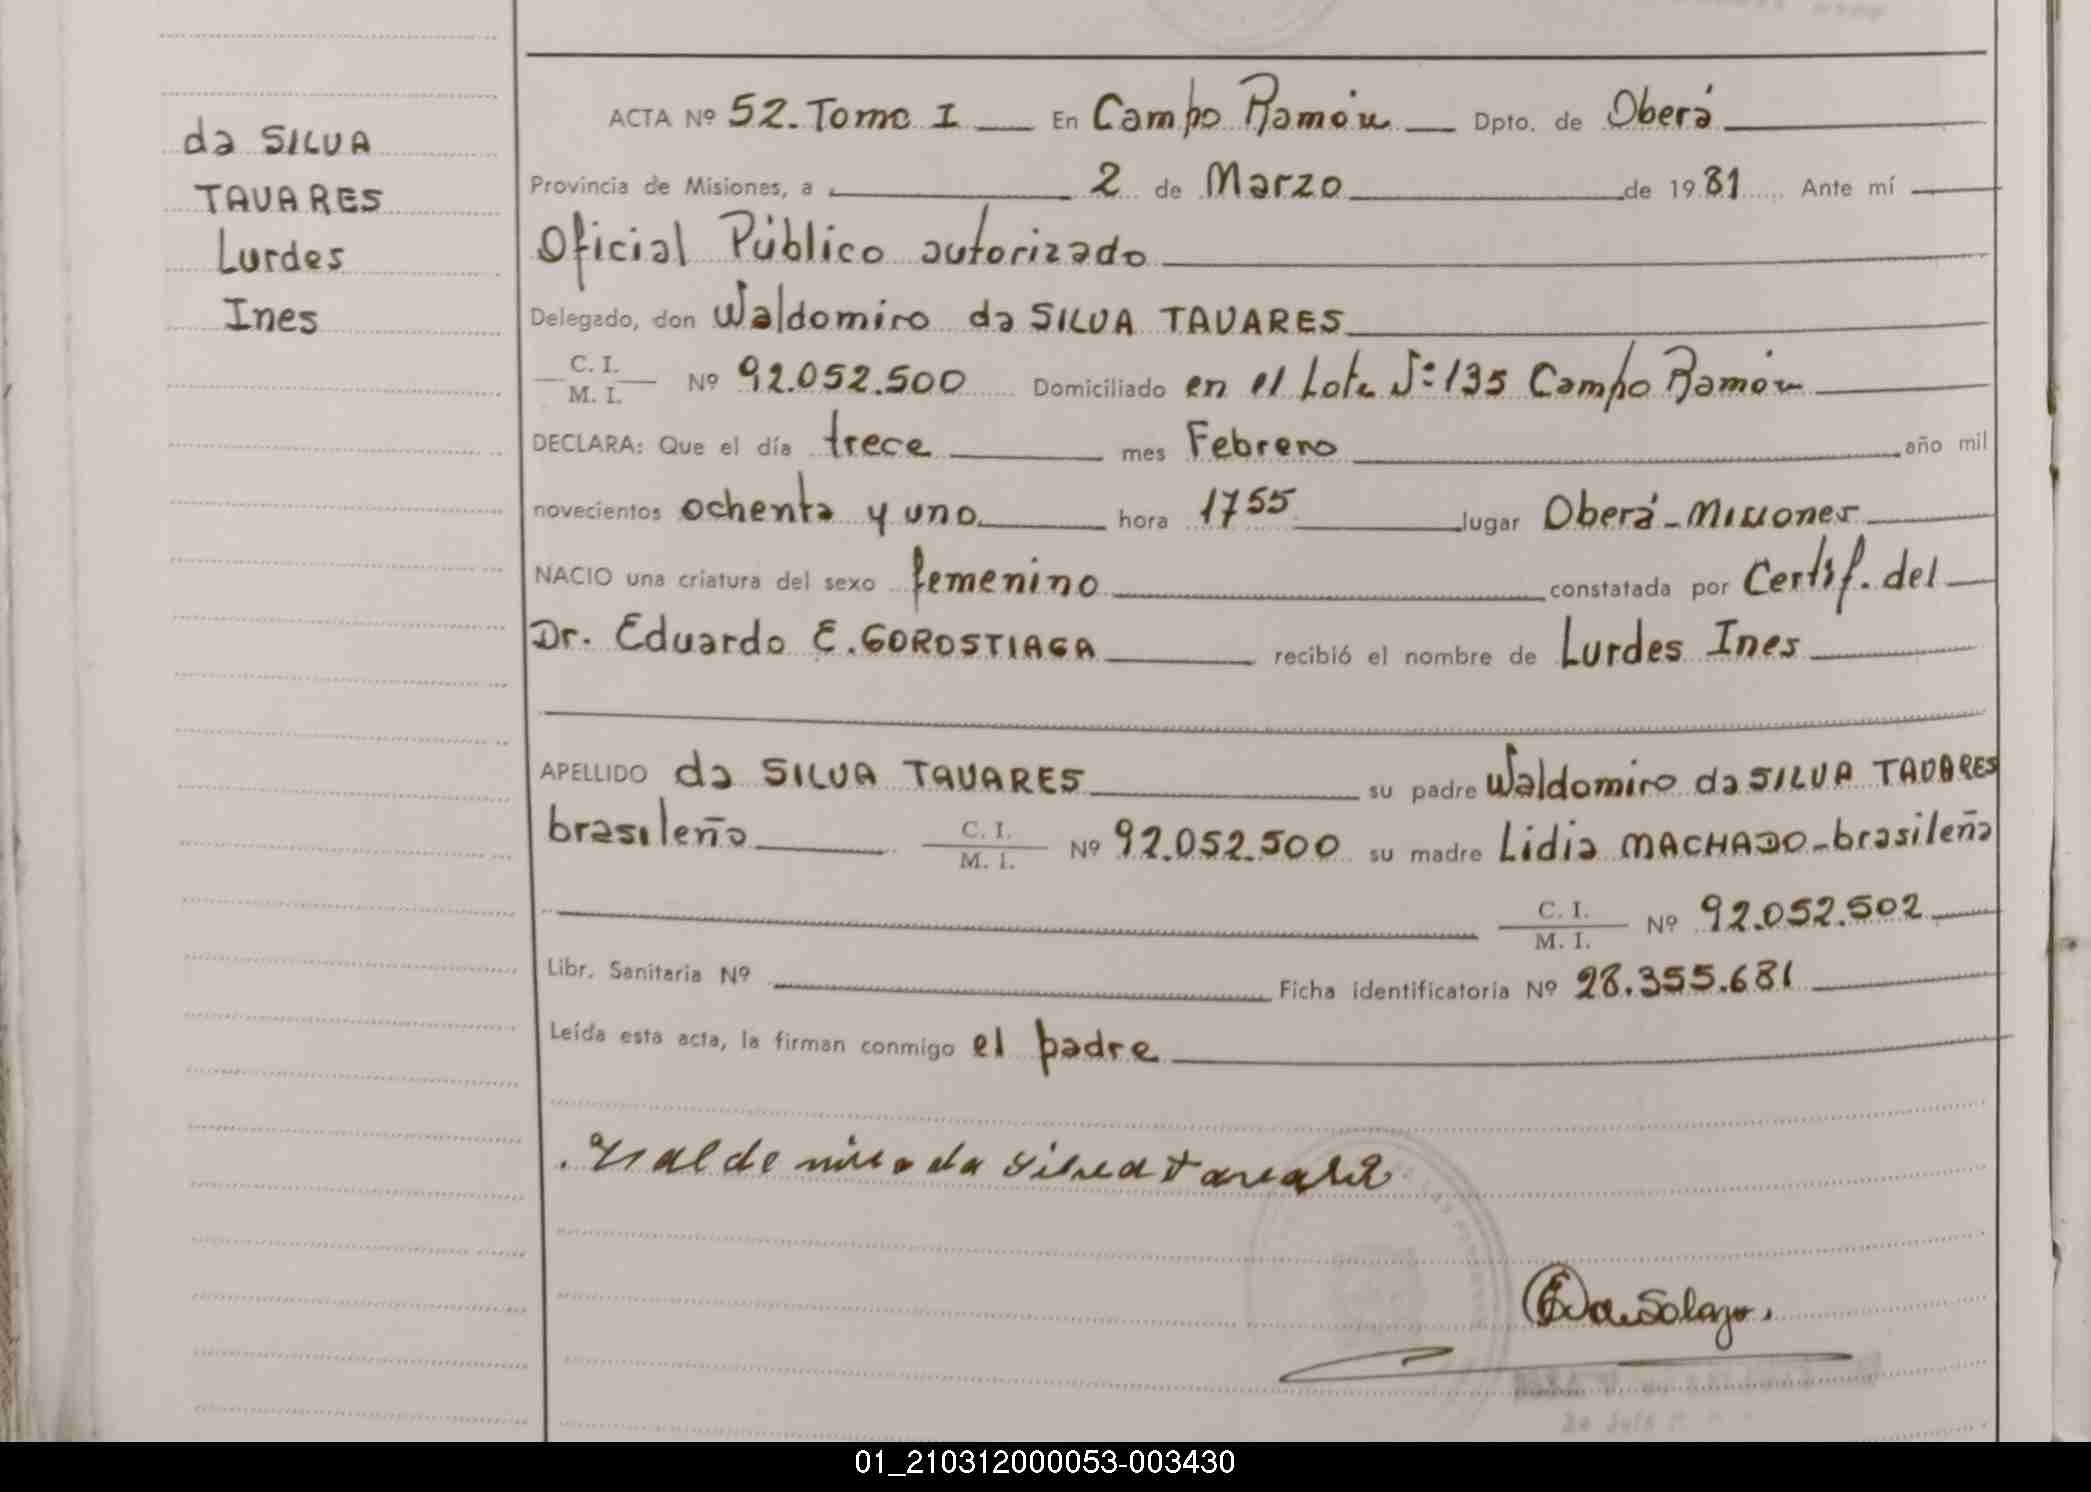 da SILVA
TAVARES
Lurdes
Ines
ACTA Nº 52. Tomo I En Campo Ramón Dpto. de Oberá
Provincia de Misiones, a 2 de Marzo de 1981 Ante mí
Oficial Público autorizado
Delegado, don Waldomiro da SILVA TAVARES
C. I.
M. I. Nº 92.052.500 Domiciliado en el Lote Nº 135 Campo Ramón
DECLARA: Que el día trece mes Febrero año mil
novecientos ochenta y uno hora 1755 lugar Oberá-Misiones
NACIO una criatura del sexo femenino constatada por Certif. del
Dr. Eduardo E. GOROSTIAGA recibió el nombre de Lurdes Ines
APELLIDO da SILVA TAVARES su padre Waldomiro da SILVA TAVARES
brasileño C. I. M. I. Nº 92.052.500 su madre Lidia MACHADO-brasileña
C. I. M. I. Nº 92.052.502
Libr. Sanitaria Nº Ficha identificatoria Nº 28.355.681
Leída esta acta, la firman conmigo el padre
01_210312000053-003430